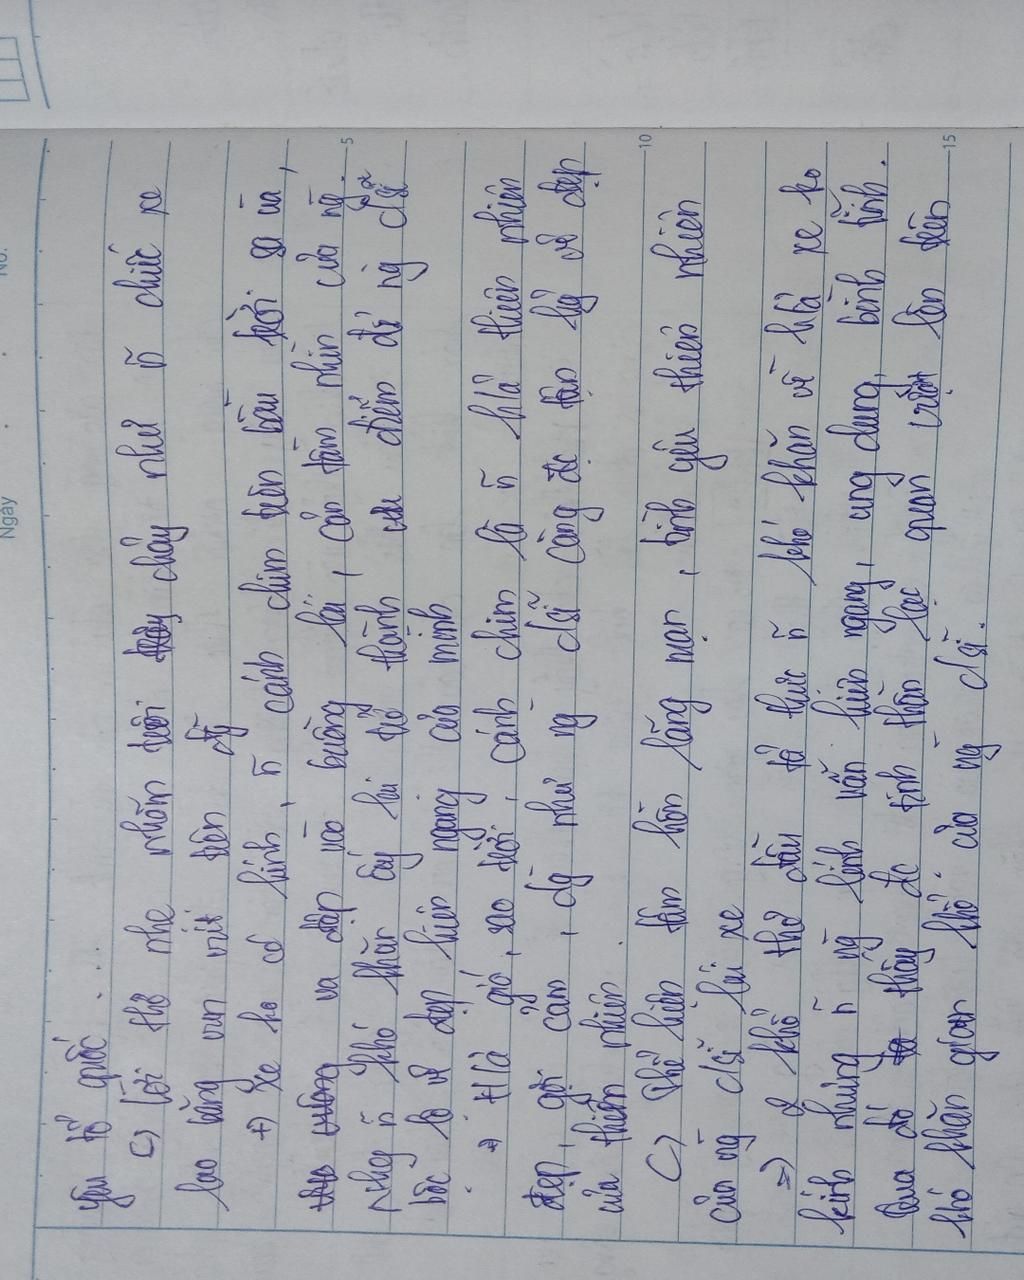 Ngày
No.
yêu tổ quốc
C) Lời thơ nhẹ nhõm trôi chảy như ~n chiếc xe
lao băng vun vút trên đg
+) Xe ko có kính, ~n cánh chim trên bầu trời sa ùa,
va đập vào buồng lái, còn tầm nhìn của ng
nhưg ~n khó khăn ấy lại trở thành ưu điểm để ng c/sĩ
bộc lộ vẻ đẹp hiên ngang của mình
+) H/a gió, sao trời, cánh chim là ~n h/a thiên nhiên
đẹp, gợi cảm, dg như ng c/sĩ cũng đc tận hg vẻ đẹp
của thiên nhiên
C) Thể hiện tâm hồn lãng mạn, tình yêu thiên nhiên
của ng c/sĩ lái xe
=) 2 khổ thơ đầu tả thực ~n khó khăn về h/a xe ko
kính nhưng ~n ng lính vẫn hiên ngang, ung dung, bình tĩnh.
Qua đó thấy đc tinh thần lạc quan vượt lên trên
khó khăn gian khổ của ng c/sĩ.
5
10
15